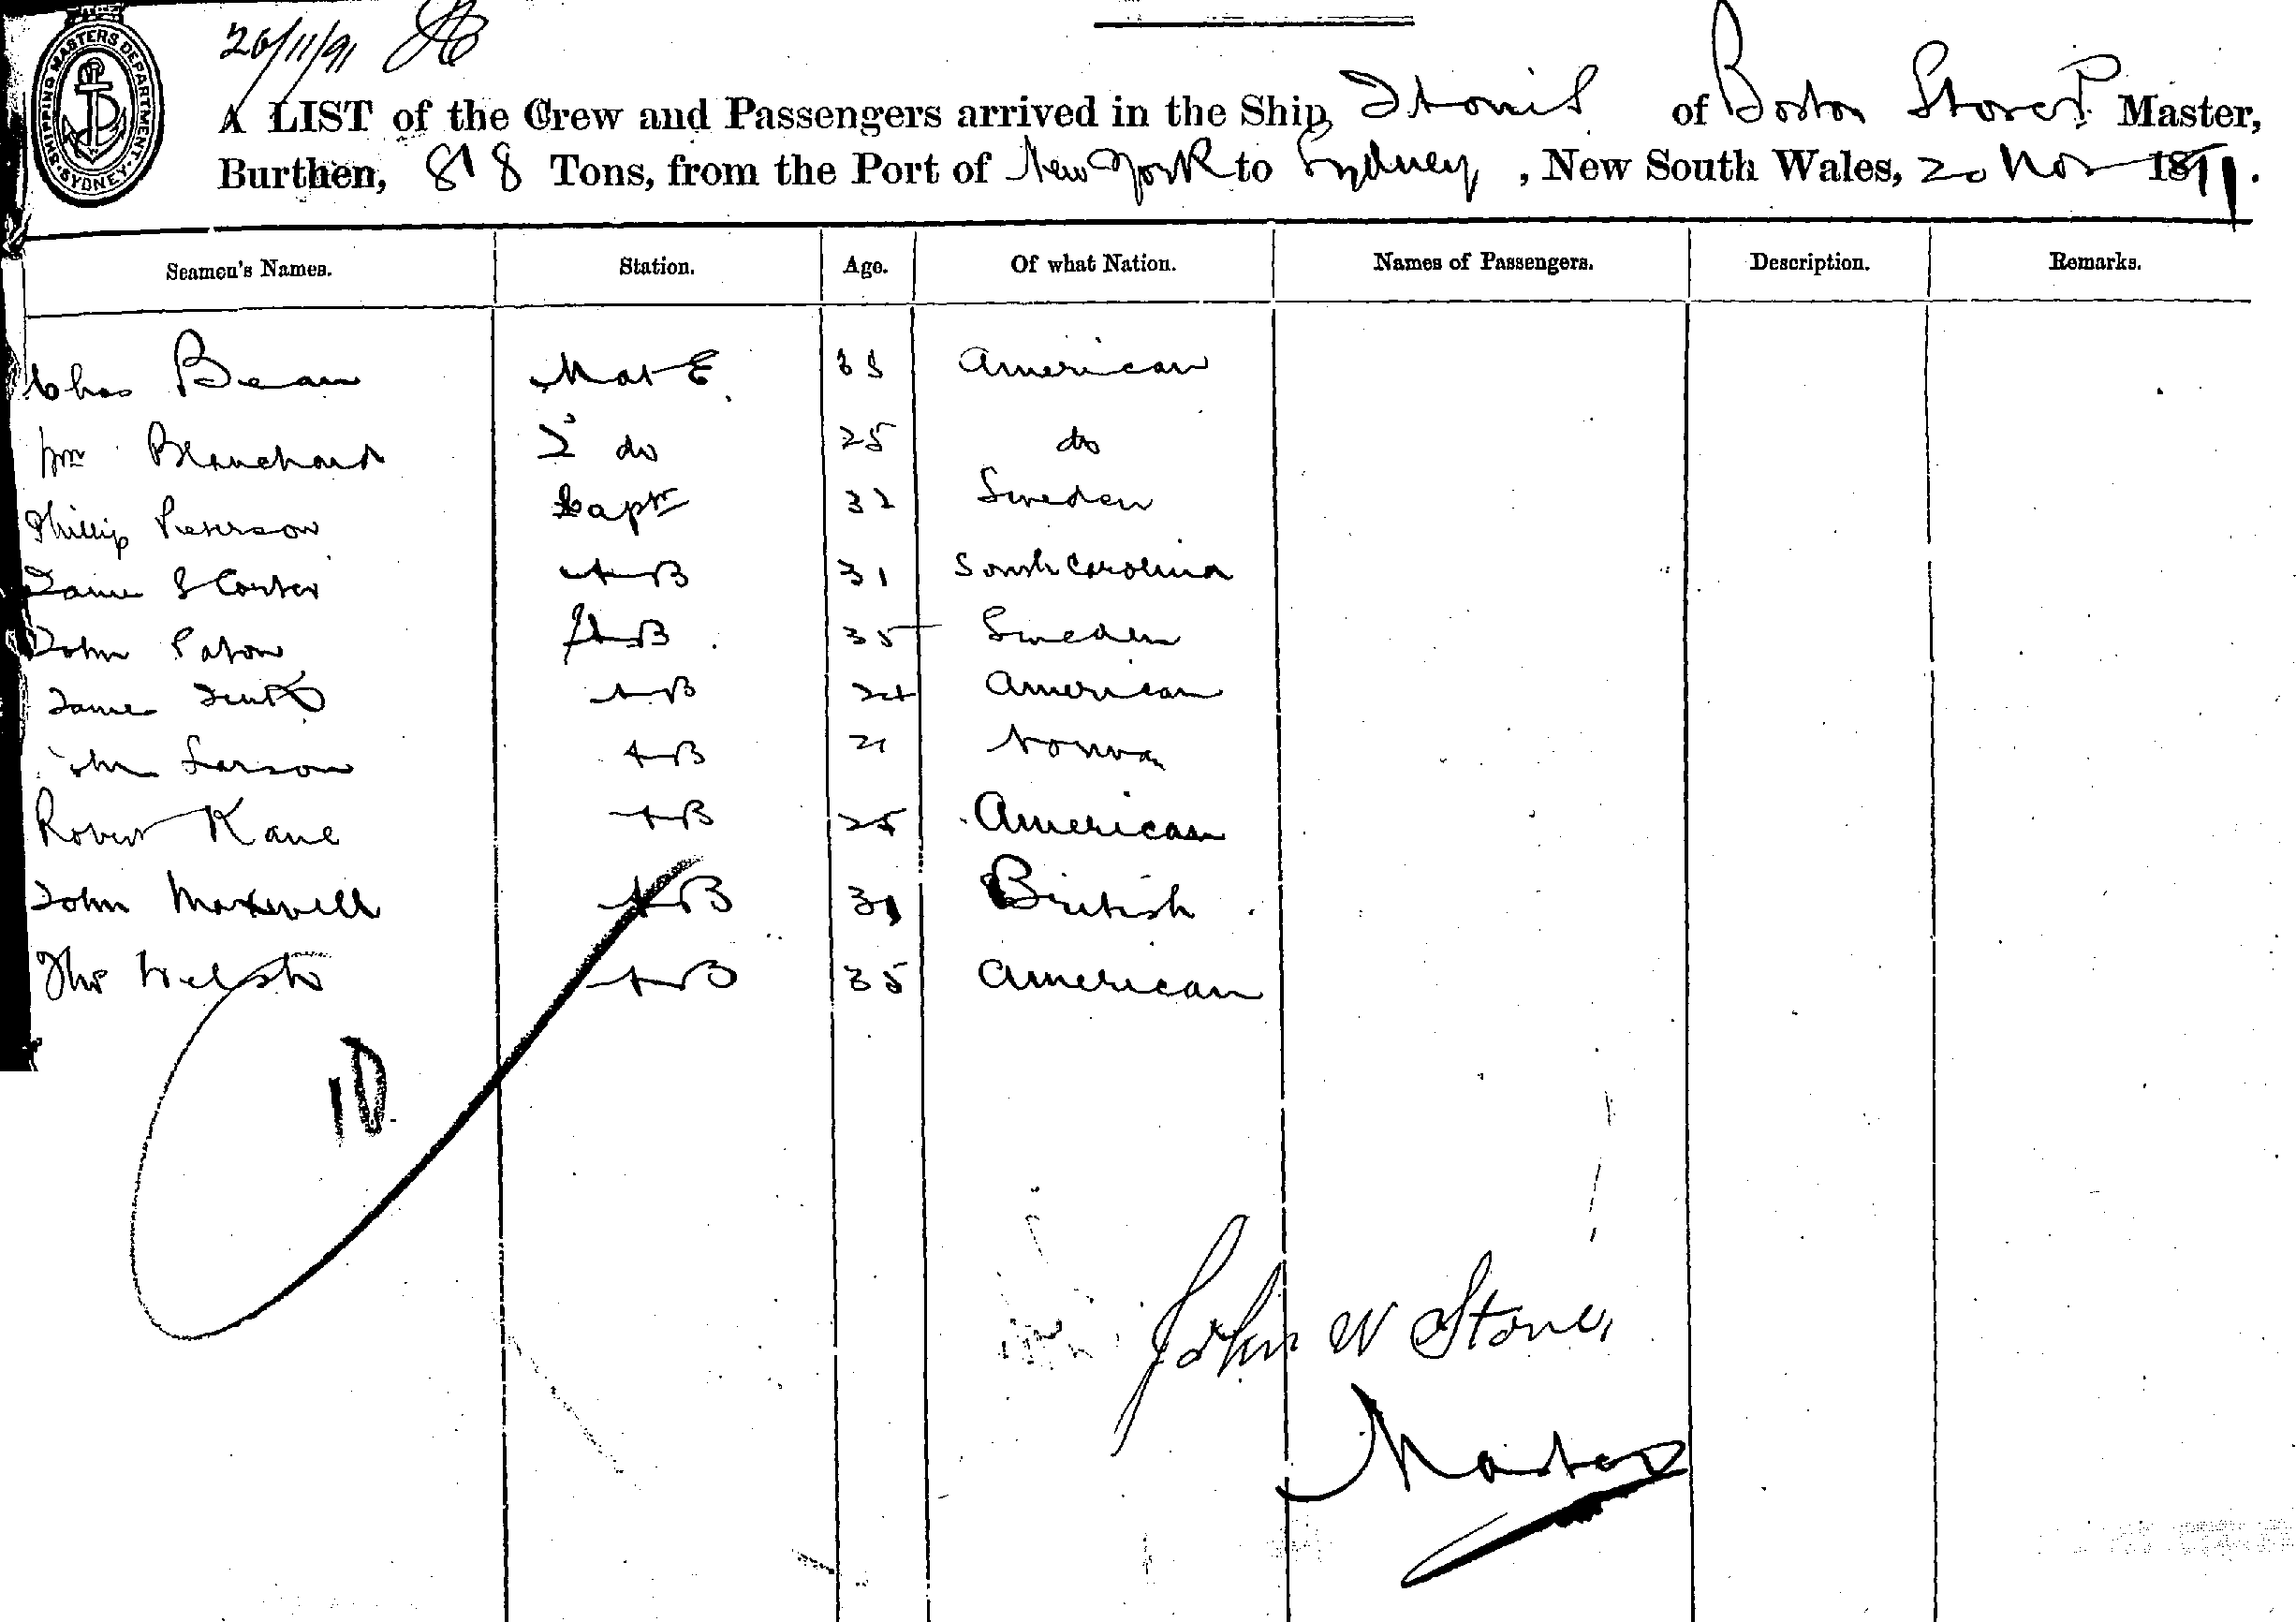 SHIPPING MASTERS DEPARTMENT. SYDNEY.
26/11/91
A LIST of the Crew and Passengers arrived in the Ship, of Boston Master,
Burthen, 818 Tons, from the Port of New York to Sydney, New South Wales, 20 Nov 1891.
Seamen's Names. Station. Age. Of what Nation. Names of Passengers. Description. Remarks.
Chas Bean Mate American
Wm Blanchard 2 do 25 do
Phillip Peterson 32 Sweden
31 South Carolina
John Paton AB 35 Sweden
AB 24 American
John Larson AB 21
Robert Kane AB 25 American
John Maxwell AB 31 British
Thos Welsh AB 35 American
10
John W Stone
Master